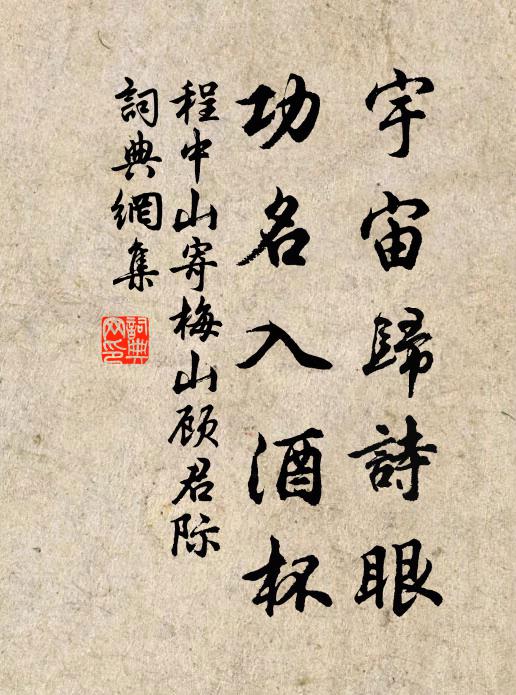 宇宙歸詩眼
功名入酒杯
程中山寄梅山顾君际
詞典網集
詞典網印